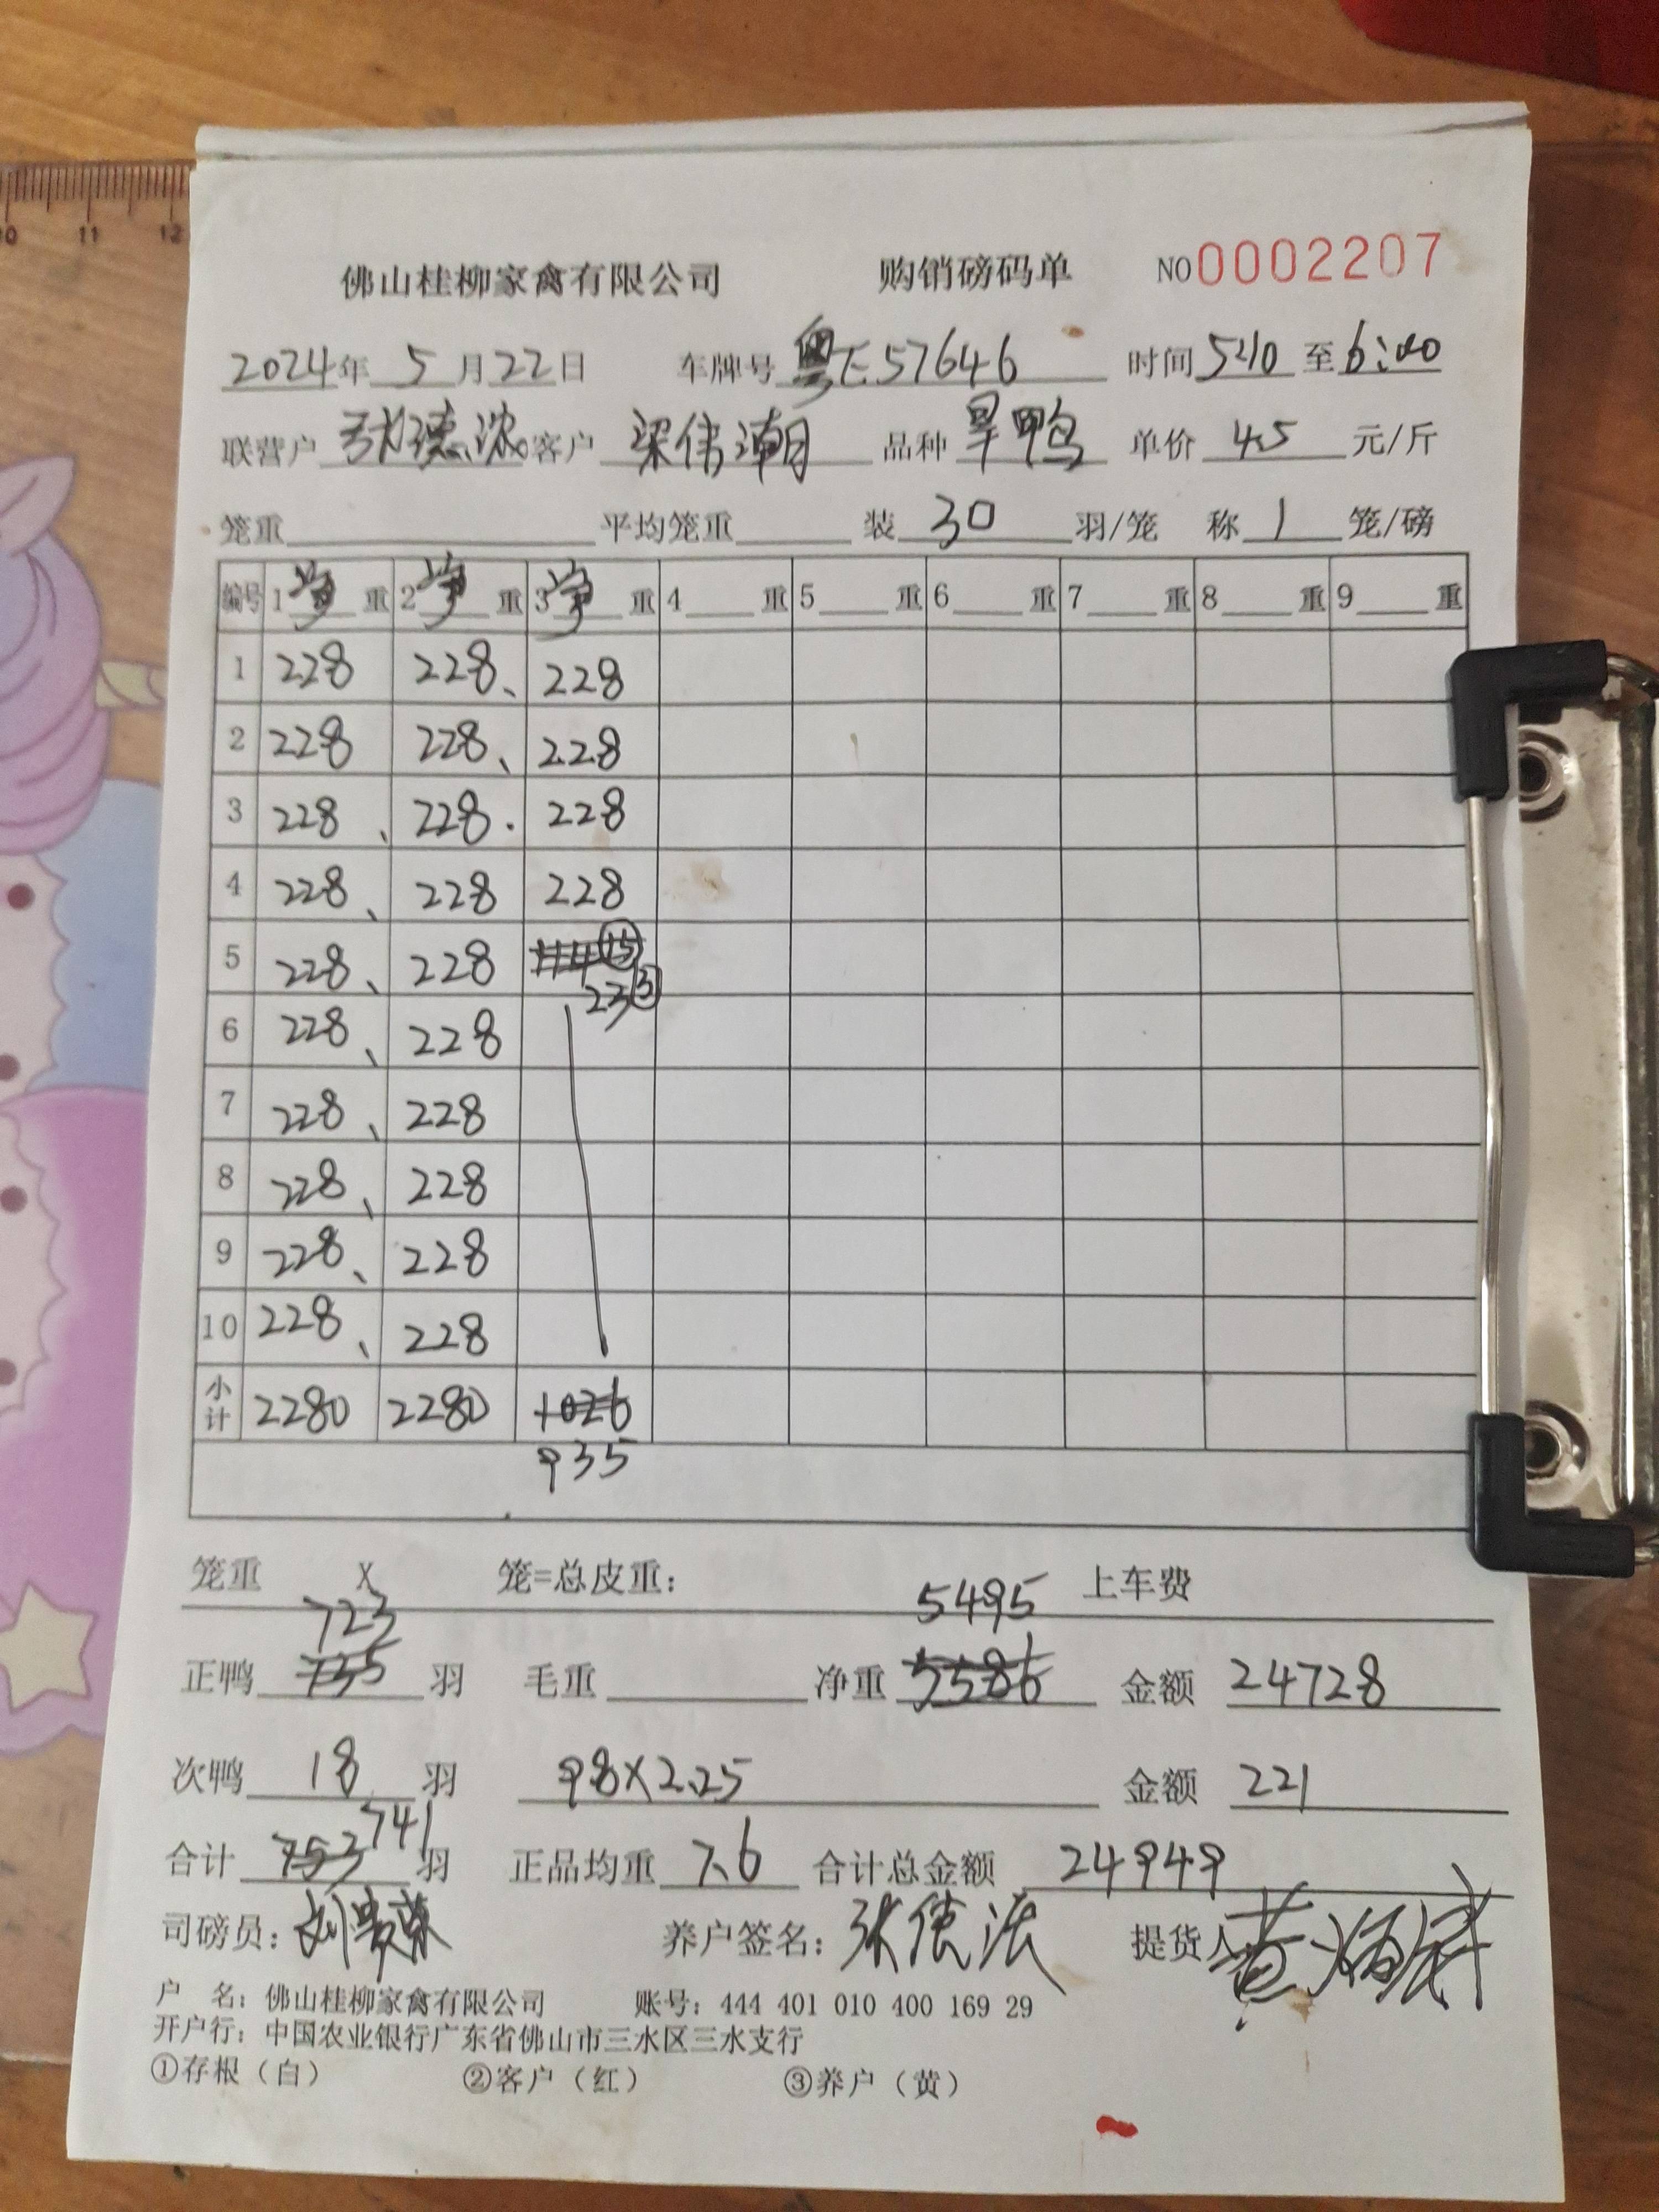 10 11 12
佛山桂柳家禽有限公司 购销磅码单 NO 0002207
2024年 5 月 22 日 车牌号 粤E57646 时间 5:10 至 6:00
联营户 张德 客户 梁伟潮 品种 旱鸭 单价 4.5 元/斤
笼重 平均笼重 装 30 羽/笼 称 1 笼/磅
编号 1 重 2 重 3 重 4 重 5 重 6 重 7 重 8 重 9 重
1 228 228、 228
2 228 228、 228
3 228、 228. 228
4 228、 228 228
5 228、 228 114 15
23 3
6 228、 228
7 228、 228
8 228、 228
9 228、 228
10 228、 228
小计 2280 2280 1026
935
笼重 X 笼=总皮重: 上车费
723 5495
正鸭 735 羽 毛重 净重 5586 金额 24728
次鸭 18 羽 98X2.25 金额 221
合计 753 741 羽 正品均重 7.6 合计总金额 24949
司磅员: 养户签名: 张德 提货人: 黄
户 名: 佛山桂柳家禽有限公司 账号: 444 401 010 400 169 29
开户行: 中国农业银行广东省佛山市三水区三水支行
①存根（白） ②客户（红） ③养户（黄）